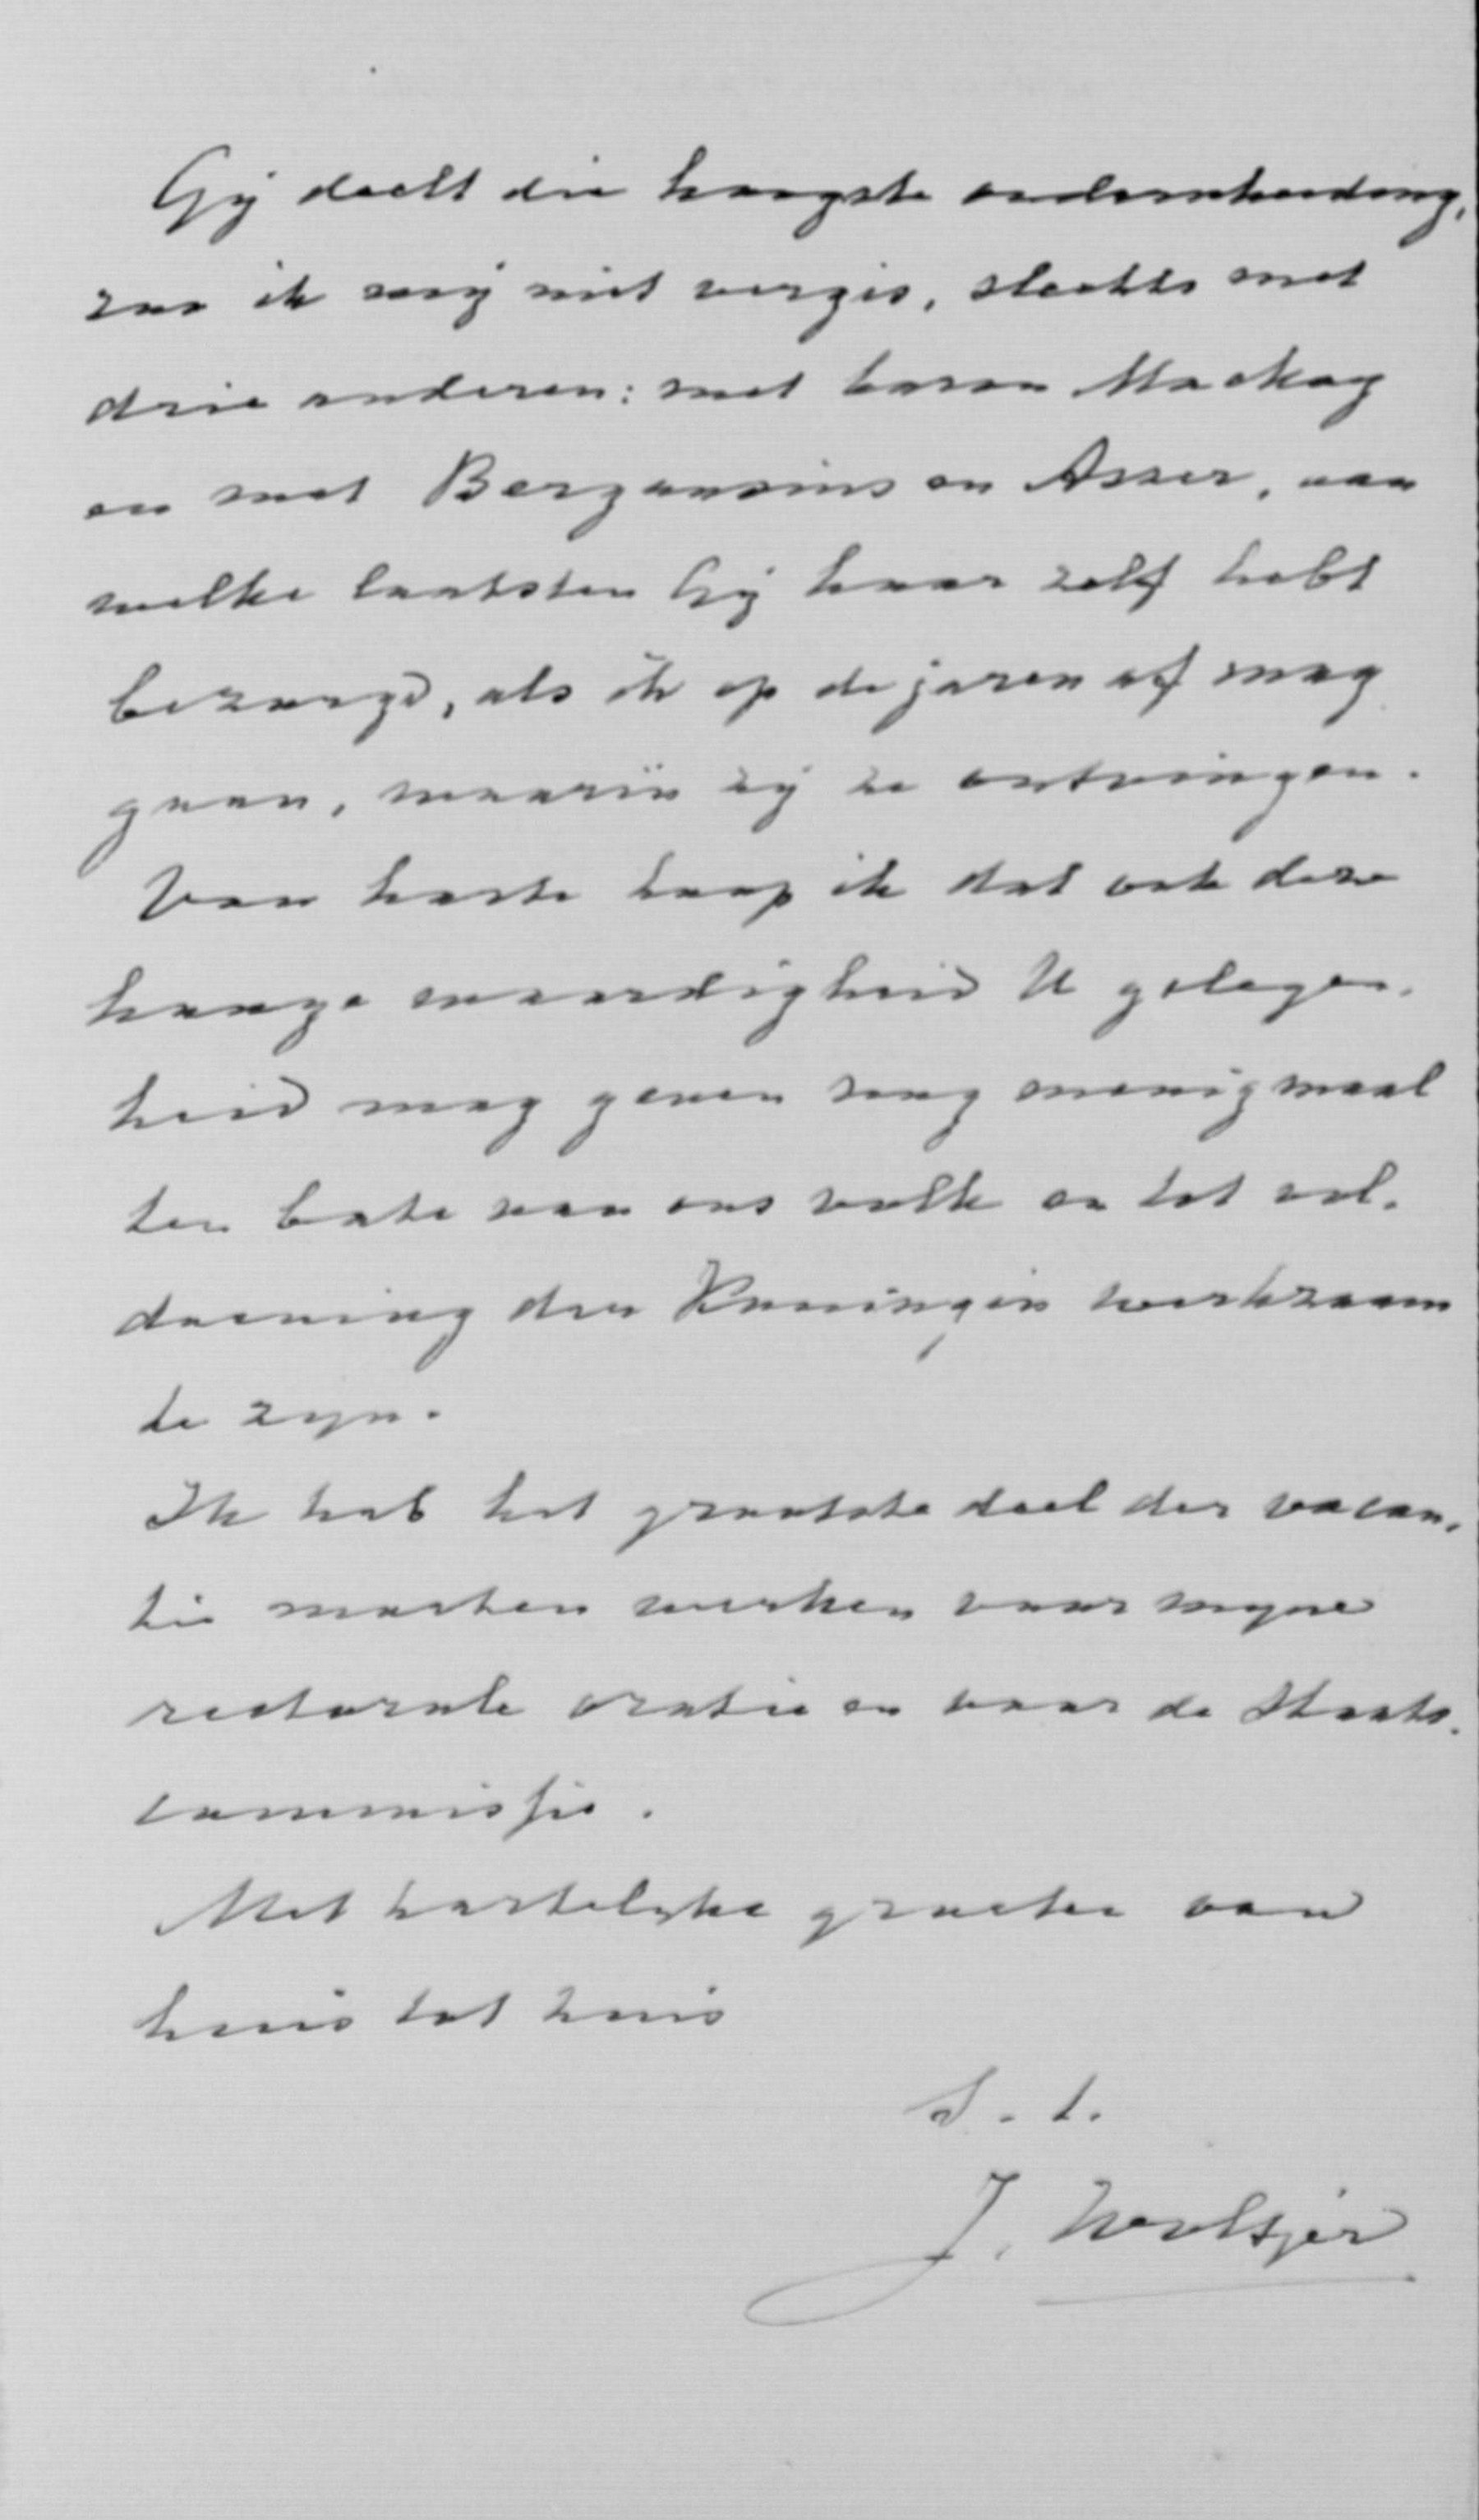 Gij deelt die hoogste onderscheiding,
zoo ik mij niet vergis, slechts met
drie anderen: met baron Mackay
en met Bergansius en Asser, aan
welke laatsten Gij haar zelf hebt
bezorgd, als ik op de jaren af mag
gaan, waarin zij ze ontvingen.
Van harte hoop ik dat ook deze
hooge waardigheid U gelegen-
heid mag geven nog menigmaal
ten bate van ons volk en tot vol-
doening der Koningin werkzaam
te zijn.
Ik heb het grootste deel der vacan-
tie moeten werken voor mijne
rectorale oratie en voor de Staats-
commissie.
Met hartelijke groeten van
huis tot huis
S. t.
J. Woltjer